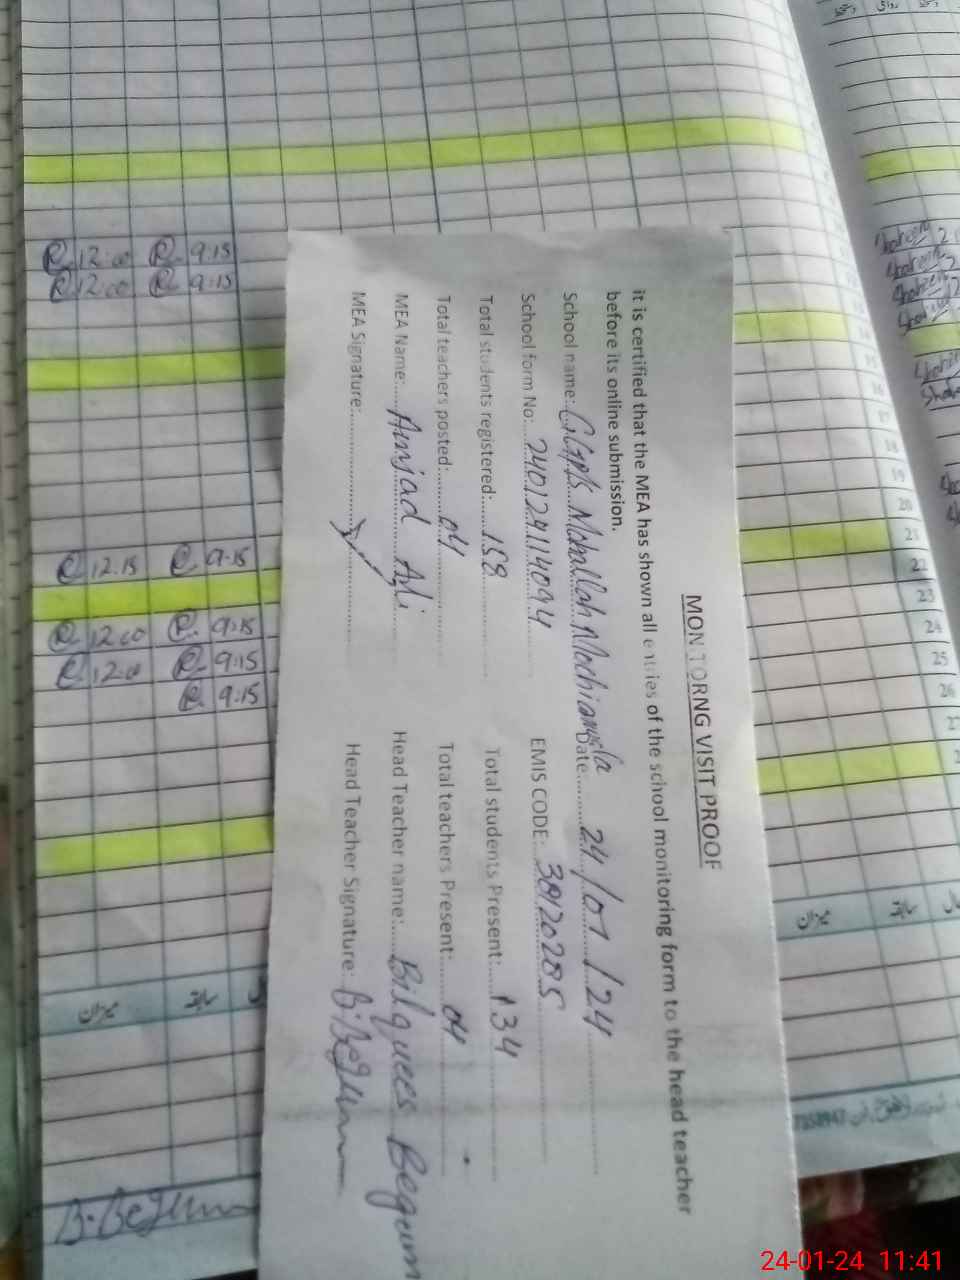 MONITORNG VISIT PROOF
it is certified that the MEA has shown all entries of the school monitoring form to the head teacher
before its online submission.
School name: GGPS Mohallah Mochianwala Date 24/01/24
School form No: 24012911 4094 EMIS CODE: 38120285
Total students registered: 158 Total students Present: 134
Total teachers posted: 04 Total teachers Present: 04
MEA Name: Amjad Ali Head Teacher name: Bilquees Begum
MEA Signature: Head Teacher Signature: B.Begum
12:00 9:15
12:00 9:15
12:15 9:15
12:00 9:15
12:00 9:15
9:15
14
15
16
17
18
19
20
21
22
23
24
25
26
میزان سابقہ
میزان سابقہ
B.Begum
24-01-24 11:41